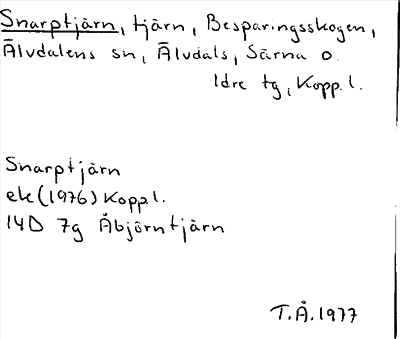 Snarptjärn, tjärn, Besparingsskogen,
Älvdalens sn, Älvdals, Särna o.
Idre tg, Kopp.l.
Snarptjärn
ek (1976) Koppl.
14D 7g Åbjörntjärn
T.Å. 1977